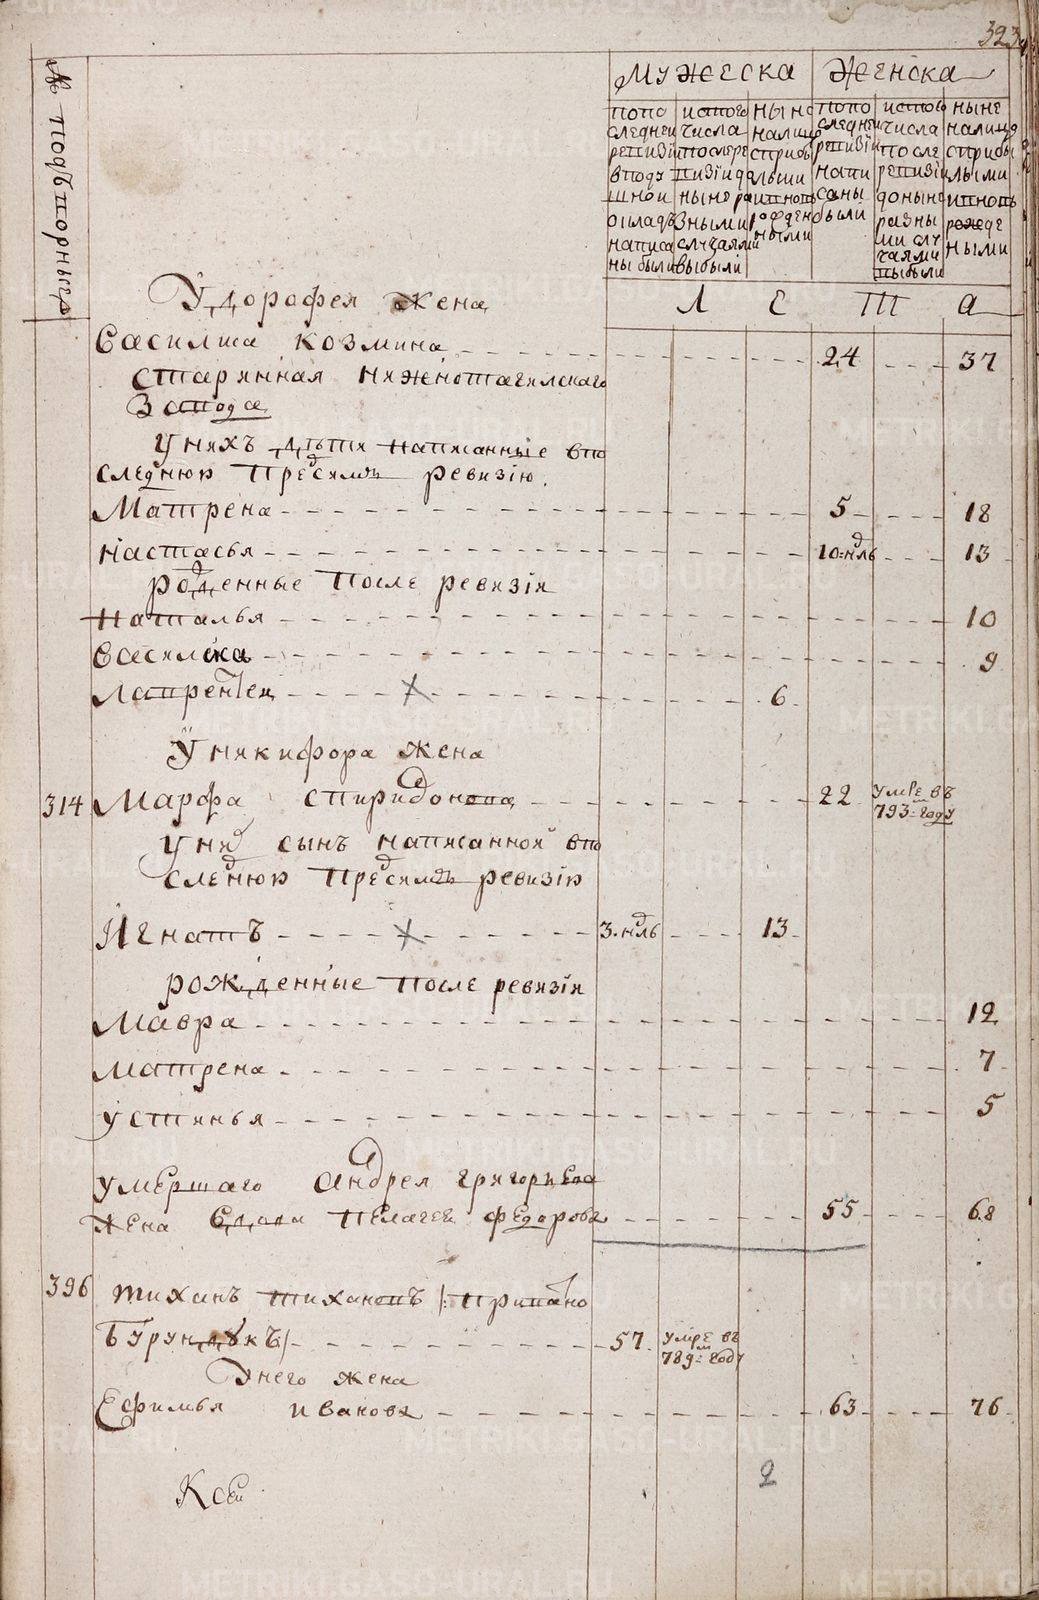 323
№ подъпорныя
Мужеска Женска
попо следнеи ревизіи вподу шнои окладъ написа ны были
истого числа послере визіи д ныне ра зными случаями выбыли
ныне налицо сприбы лыми ипновь рожден ными
попо следнеи ревизіи напи саны были
истого числа после ревизіи доныне разны ми слу чаями выбыли
ныне налицо сприбы лыми ипновь рожде ными
Л Е Т а
У дорофея жена
Василиса козмина 24 37
старинная нижнотагилскаго
Завода
У нихъ дѣти написанные впо
следнюю пред симъ ревизію.
Матрена 5 18
Настасья 10:нѣд 13
рожденные после ревизіи
Наталья 10
Василиса 9
Лаврентеи 6
У никифора жена
314 Марфа спиридонова 22 умре въ 793:м году
У ней сынъ написанной впо
следнюю пред симъ ревизію
Игнатъ 3.нѣд 13
рожденные после ревизіи
Мавра 12
Матрена 7
устинья 5
умершаго андрея григорьева
жена вдова Пелагея федорова 55 68
396 тиханъ тихановъ /: прозвано
Бурундукъ/ 57. умре въ 789:м году
Унего жена
Ефимья иванова 63 76
2
Ксеи